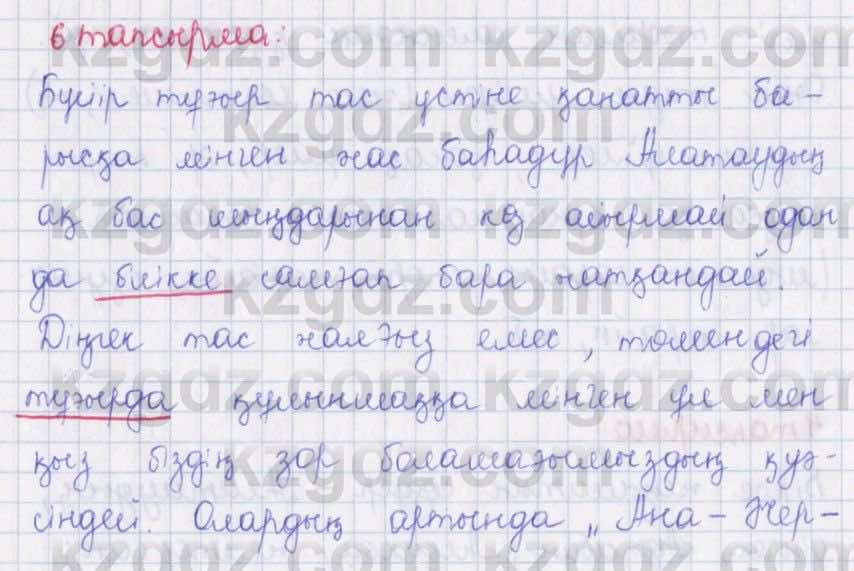 6 тапсырма:
Бүйір тұғыр тас үстіне қанатты ба-
рысқа мінген жас баһадүр Алатаудың
ақ бас шыңдарынан көз айырмай одан
да биікке самғап бара жатқандай.
Діңгек тас жалғыз емес, төмендегі
тұғырда құлыншаққа мінген ұл мен
қыз біздің зор болашағымыздың куә-
сіндей. Олардың артында „Ана-Жер-
kzgdz.com